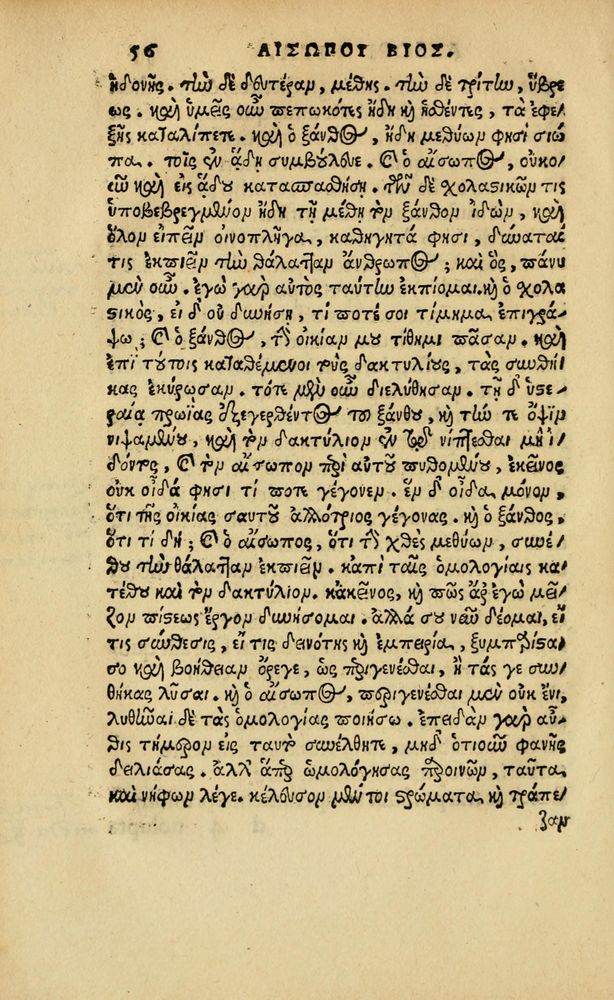 56 ΑΙΣΩΠΟΥ ΒΙΟΣ.
ἡδονῆς. τὴν δὲ δευτέραν, μέθης. τὴν δὲ τρίτην, ὕβρε
ως. καὶ ὑμεῖς οὖν πεπωκότες ἤδη καὶ ἡσθέντες, τὰ ἐφε-
ξῆς καταλίπετε. καὶ ὁ ξάνθος, ἤδη μεθύων φησὶ σιώ
πα. τοῖς ἐν ἅδη συμβούλευε. καὶ ὁ αἴσωπος, οὐκο-
ῦν καὶ εἰς ἅδου κατασπασθήσῃ. τῶν δὲ σχολαστικῶν τις
ὑποβεβρεγμένον ἤδη τῇ μέθῃ τὸν ξάνθον ἰδὼν, καὶ
ὅλον εἰπεῖν οἰνοπλῆγα, καθηγητά φησι, δύναταί
τις ἐκπιεῖν τὴν θάλατταν ἄνθρωπος; καὶ ὃς, πάνυ
μὲν οὖν. ἐγὼ γὰρ αὐτὸς ταύτην ἐκπίομαι. καὶ ὁ σχολα
στικὸς, εἰ δ' οὐ δυνήσῃ, τί ποτέ σοι τίμημα ἐπιγρά-
ψω; καὶ ὁ ξάνθος, τὴν οἰκίαν μου τίθημι πᾶσαν. καὶ
ἐπὶ τούτοις καταθέμενοι τοὺς δακτυλίους, τὰς συνθή-
κας ἐκύρωσαν. τότε μὲν οὖν διελύθησαν. τῇ δ' ὑστε-
ραίᾳ πρωΐας ἐξεγερθέντος τοῦ ξάνθου, καὶ τήν τε ὄψιν
νιψαμένου, καὶ τὸν δακτύλιον ἐν τῷ νίπτεσθαι μὴ ἰ
δόντος, καὶ τὸν αἴσωπον περὶ αὐτοῦ πυθομένου, ἐκεῖνος
οὐκ οἶδά φησι τί ποτε γέγονεν. ἓν δ' οἶδα μόνον,
ὅτι τῆς οἰκίας σαυτοῦ ἀλλότριος γέγονας. καὶ ὁ ξάνθος,
ὅτι τί δή; καὶ ὁ αἴσωπος, ὅτι τὸ χθὲς μεθύων, συνέ-
θου τὴν θάλατταν ἐκπιεῖν. κἀπὶ ταῖς ὁμολογίαις κα-
τέθου καὶ τὸν δακτύλιον. κἀκεῖνος, καὶ πῶς ἄρ' ἐγὼ μεῖ-
ζον πίστεως ἔργον δυνήσομαι. ἀλλά σου νῦν δέομαι, εἴ
τις σύνθεσις, εἴ τις δεινότης καὶ ἐμπειρία, ξυμπόρισα-
σο καὶ βοήθειαν ὄρεγε, ὡς περιγενέσθαι, ἢ τάς γε συν-
θήκας λῦσαι. καὶ ὁ αἴσωπος, περιγενέσθαι μὲν οὐκ ἔνι,
λυθῆναι δὲ τὰς ὁμολογίας ποιήσω. ἐπειδὰν γὰρ αὖ-
θις τήμερον εἰς ταυτὸ συνέλθητε, μηδ' ὁτιοῦν φανῇς
δειλιάσας. ἀλλ' ἅπερ ὡμολόγησας παροινῶν, ταῦτα
καὶ νήφων λέγε. κέλευσον μέντοι στρώματα, καὶ τράπε
ζαν